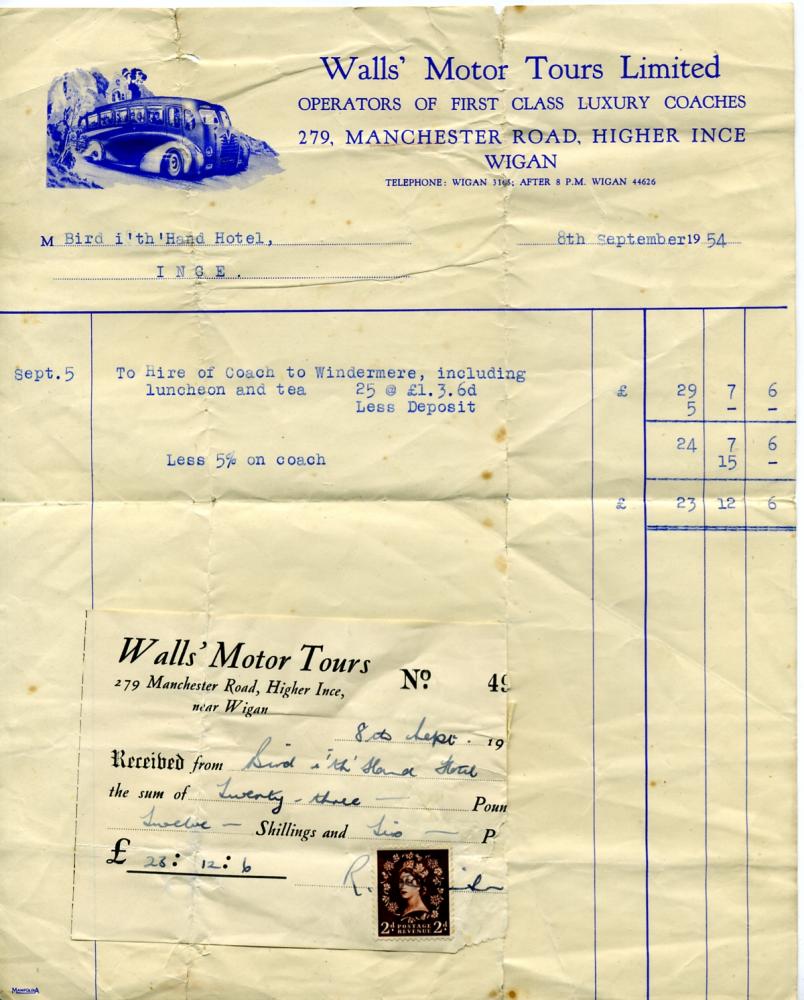 Walls' Motor Tours Limited
OPERATORS OF FIRST CLASS LUXURY COACHES
279, MANCHESTER ROAD, HIGHER INCE
WIGAN
TELEPHONE: WIGAN 3165; AFTER 8 P.M. WIGAN 44626
M Bird i'th'Hand Hotel, 8th September 19 54
I N G E .
Sept.5 To Hire of Coach to Windermere, including
luncheon and tea 25 @ £1.3.6d £ 29 7 6
Less Deposit 5 - -
24 7 6
Less 5% on coach 15 -
£ 23 12 6
Walls' Motor Tours
279 Manchester Road, Higher Ince,
near Wigan
No 49
8th Sept. 19
Received from Bird i'th' Hand Hotel
the sum of Twenty-three — Poun
Twelve — Shillings and Six — P
£ 23: 12: 6
R.
2d POSTAGE REVENUE 2d